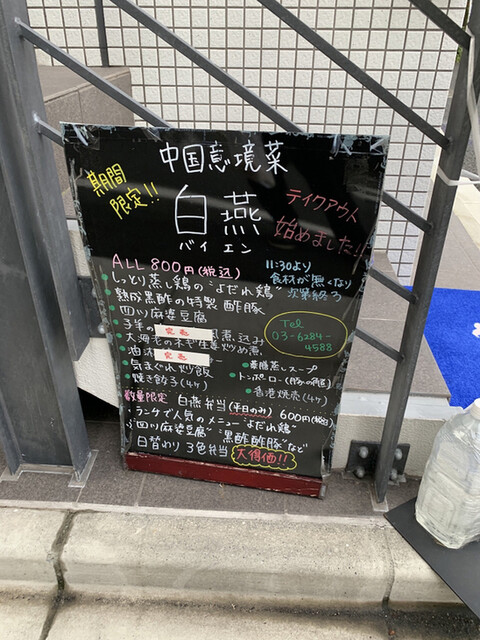 中国意境菜
期間
限定!!
白燕
バイエン
テイクアウト
始めました!!
ALL 800円(税込)
11:30より
食材が無くなり
次第終了
しっとり蒸し鶏の"よだれ鶏"
熟成黒酢の特製 酢豚
四川麻婆豆腐
完売 煮込み
大海老のネギ生姜炒め煮
完売
気まぐれ炒飯
焼き餃子(4ヶ)
Tel
03-6284-
4588
薬膳蒸しスープ
トンポーロー
香港焼売(4ヶ)
数量限定 白燕弁当(平日のみ) 600円(税込)
ランチで人気のメニュー"よだれ鶏"
"四川麻婆豆腐""黒酢酢豚"など
日替わり 3色弁当 大得価!!